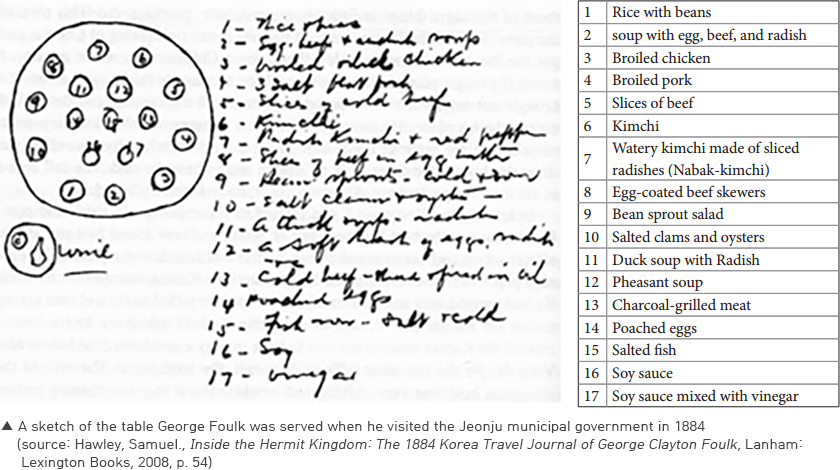 1 - Rice beans
Egg, beef & radish soup
chicken
pork
5 - Slices of cold beef
6 - Kimchi
7 - Radish Kimchi & red pepper
8 - Slices of beef in egg
9 - sprouts - cold
10 - Salt clams & oysters -
11 - soup - radish
12 - A soft of eggs, radish
13 - Cold beef - fired on oil
14 eggs
15 - Fish - salt & cold
16 - Soy
17 - vinegar
7
6
8
12
11
5
9
14
15
13
4
10
16
17
1
2
3
wine
1 Rice with beans
2 soup with egg, beef, and radish
3 Broiled chicken
4 Broiled pork
5 Slices of beef
6 Kimchi
7 Watery kimchi made of sliced
radishes (Nabak-kimchi)
8 Egg-coated beef skewers
9 Bean sprout salad
10 Salted clams and oysters
11 Duck soup with Radish
12 Pheasant soup
13 Charcoal-grilled meat
14 Poached eggs
15 Salted fish
16 Soy sauce
17 Soy sauce mixed with vinegar
▲ A sketch of the table George Foulk was served when he visited the Jeonju municipal government in 1884
(source: Hawley, Samuel., Inside the Hermit Kingdom: The 1884 Korea Travel Journal of George Clayton Foulk, Lanham:
Lexington Books, 2008, p. 54)